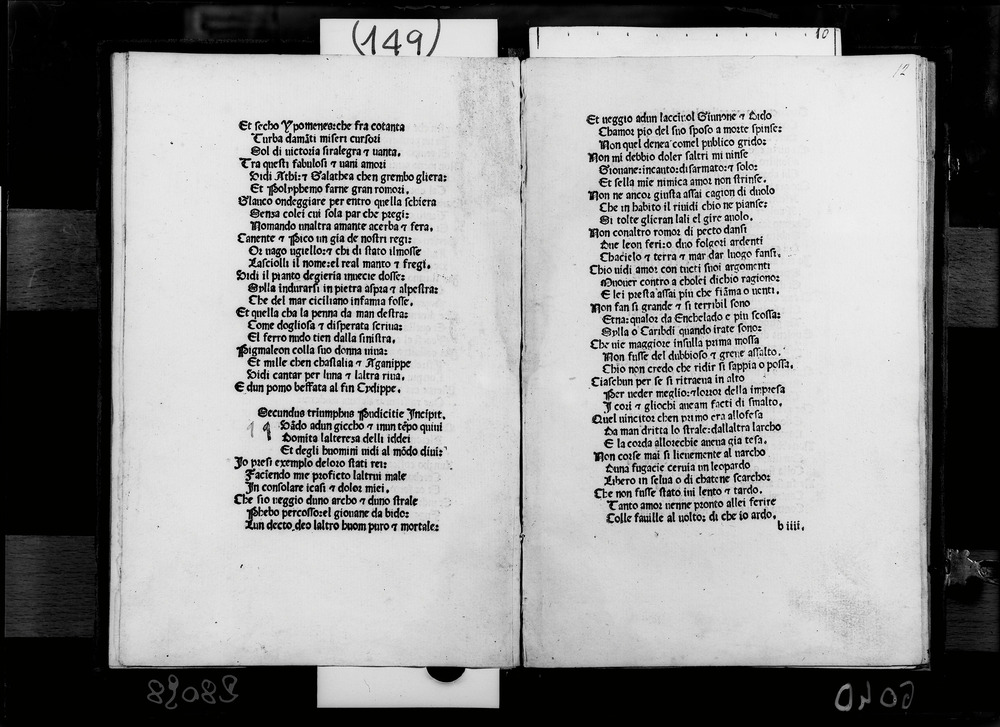 (149)
10
12
Et secho Ypomenea: che fra cotanta
Turba damãti miseri cursori
Sol di uictoria siralegra ⁊ uanta.
Tra questi fabulosi ⁊ uani amori
Vidi Athi: ⁊ Galathea chen grembo gliera:
Et Polyphemo farne gran romori.
Glauco ondeggiare per entro quella schiera
Senza colei cui sola par che pregi:
Nomando unaltra amante acerba ⁊ fera.
Canente ⁊ Pico un gia de nostri regi:
Or uago ugiello: ⁊ chi di stato ilmosse
Lasciolli il nome: el real manto ⁊ fregi.
Vidi il pianto degieria inuecie dosse:
Sylla indurarsi in pietra aspra ⁊ alpestra:
Che del mar ciciliano infamia fosse.
Et quella cha la penna da man destra:
Come dogliosa ⁊ disperata scriua:
El ferro nudo tien dalla sinistra.
Pigmaleon colla suo donna uiua:
Et mille chen chastalia ⁊ Aganippe
Vidi cantar per luna ⁊ laltra riua.
E dun pomo beffata al fin Cydippe.
Secundus triumphus Pudicitie Incipit.
Vãdo adun giecho ⁊ inun tẽpo quiui
Domita lalterezа delli iddei
Et degli huomini uidi al mõdo diui:
Jo presi exemplo deloro stati rei:
Faciendo mie proficto laltrui male
Jn consolare icasi ⁊ dolor miei.
Che sio ueggio duno archo ⁊ duno strale
Phebo percosso: el giouane da bido:
Lun decto deo laltro huom puro ⁊ mortale:
Et ueggio adun lacciuol Giunone ⁊ Dido
Chamor pio del suo sposo a morte spinse:
Non quel denea comel publico grido:
Non mi debbio doler saltri mi uinse
Giouane: incauto: disarmato: ⁊ solo:
Et sella mie nimica amor non strinse.
Non ne ancor giusta assai cagion di duolo
Che in habito il riuidi chio ne pianse:
Si tolte glieran lali el gire auolo.
Non conaltro romor di pecto dansi
Due leon feri: o duo folgori ardenti
Chacielo ⁊ terra ⁊ mar dar luogo fansi.
Chio uidi amor con tucti suoi argomenti
Muouer contro a cholei dichio ragiono:
E lei presta assai piu che fiãma o uenti.
Non fan si grande ⁊ si terribil sono
Etna: qualor da Enchelado e piu scossa:
Sylla o Caribdi quando irate sono:
Che uie maggiore insulla prima mossa
Non fusse del dubbioso ⁊ greue assalto.
Chio non credo che ridir si sappia o possa.
Ciaschun per se si ritraeua in alto
Per ueder meglio: ⁊ lorror della impresa
J cori ⁊ gliochi aueam facti di smalto.
Quel uincitor chen primo era allofesa
Da man dritta lo strale: dallaltra larcho
E la corda allorecbie aueua gia tesa.
Non corse mai si lieuemente al uarcho
Duna fugacie ceruia un leopardo
Libero in selua o di chatene scarcho:
Che non fusse stato iui lento ⁊ tardo.
Tanto amor uenne pronto allei ferire
Colle fauille al uolto: di che io ardo.
b iiii.
28098
6040